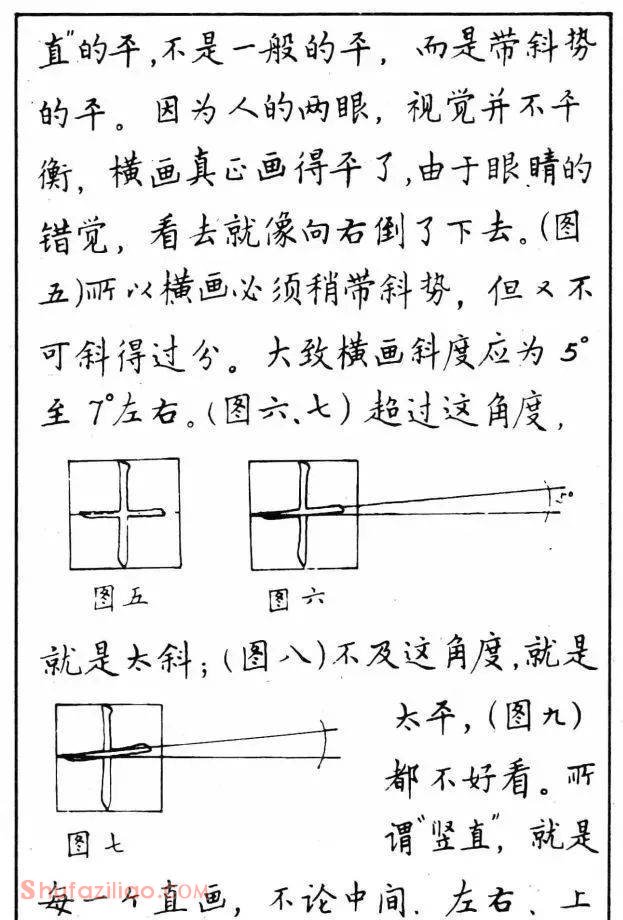 直”的平,不是一般的平, 而是带斜势
的平。因为人的两眼, 视觉并不平
衡, 横画真正画得平了,由于眼睛的
错觉, 看去就像向右倒了下去。(图
五)所以横画必须稍带斜势, 但又不
可斜得过分。大致横画斜度应为5°
至7°左右。(图六、七)超过这角度,
5°
图五
图六
就是太斜;(图八)不及这角度,就是
太平,(图九)
都不好看。所
谓“竖直”, 就是
图七
每一个直画, 不论中间、左右、上
Shufaziliao.COM